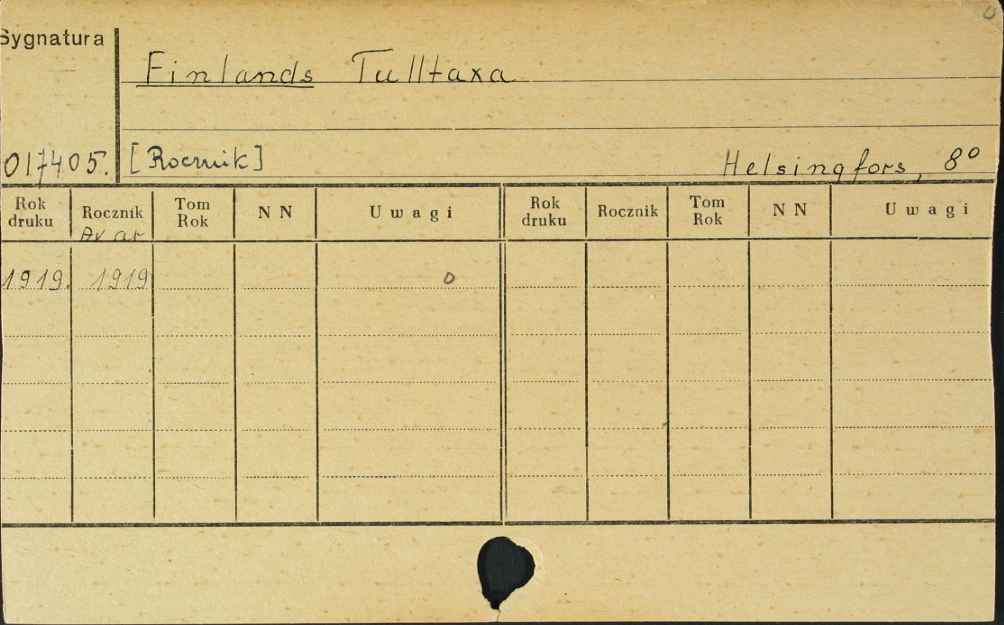 Sygnatura
Finlands Tulltaxa
017405. [Rocznik] Helsingfors, 8°
Rok druku Rocznik Tom Rok NN Uwagi Rok druku Rocznik Tom Rok NN Uwagi
1919. 1919 0